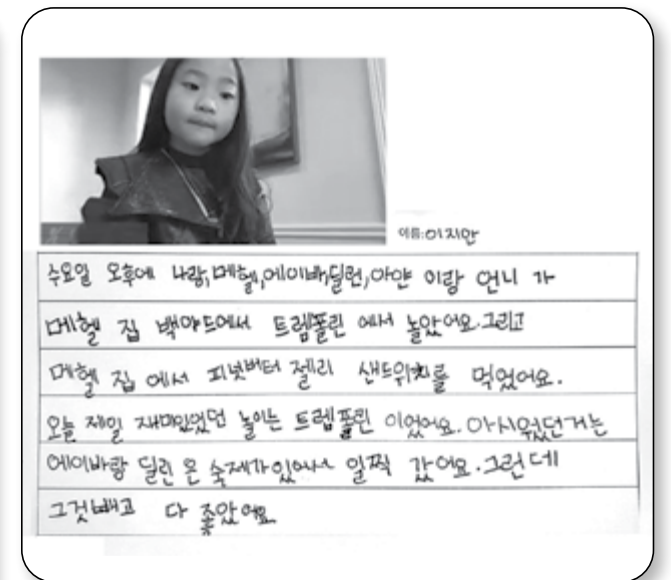 이름:이지안
수요일 오후에 나랑,메헬,에이바,딜런,아얀 이랑 언니 가
메헬 집 백야드에서 트램폴린 에서 놀았어요.그리고
메헬 집 에서 피넛버터 젤리 샌드위치를 먹었어요.
오늘 제일 재미있었던 놀이는 트렘폴린 이었어요. 아시웠던거는
에이바랑 딜런 은 숙제가있어서 일찍 갔어요.그런데
그것빼고 다 좋았어요